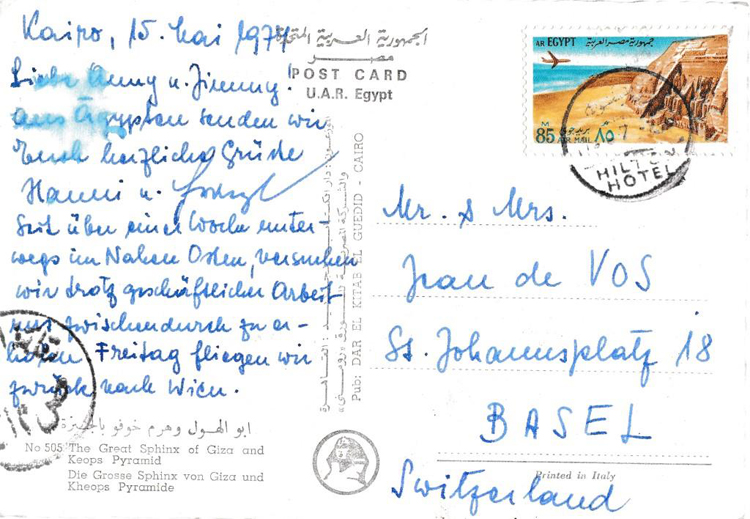 Kairo, 15. Mai 1974
Liebe Anny u. Jimmy!
aus Ägypten senden wir
Euch herzliche Grüße
Hanni u.
Seit über einer Woche unter-
wegs im Nahen Osten, versuchen
wir trotz geschäftlicher Arbeit
uns zwischendurch zu er-
holen. Freitag fliegen wir
zurück nach Wien.
ابو الهول وهرم خوفو بالجيزة
No 505 The Great Sphinx of Giza and
Keops Pyramid
Die Grosse Sphinx von Giza und
Kheops Pyramide
الجمهورية العربية المتحدة
مصر
POST CARD
U.A.R. Egypt
Pub: DAR EL KITAB EL GUEDID - CAIRO
AR EGYPT جمهورية مصر العربية
M
85 AIR MAIL ٨٥
HILTON
HOTEL
Mr. & Mrs.
Jean de VOS
St. Johannsplatz 18
BASEL
Switzerland
Printed in Italy